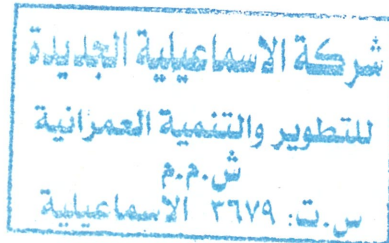 شركة الاسماعيلية الجديدة
للتطوير والتنمية العمرانية
ش.م.م
س.ت: ٣٦٧٩ الاسماعيلية